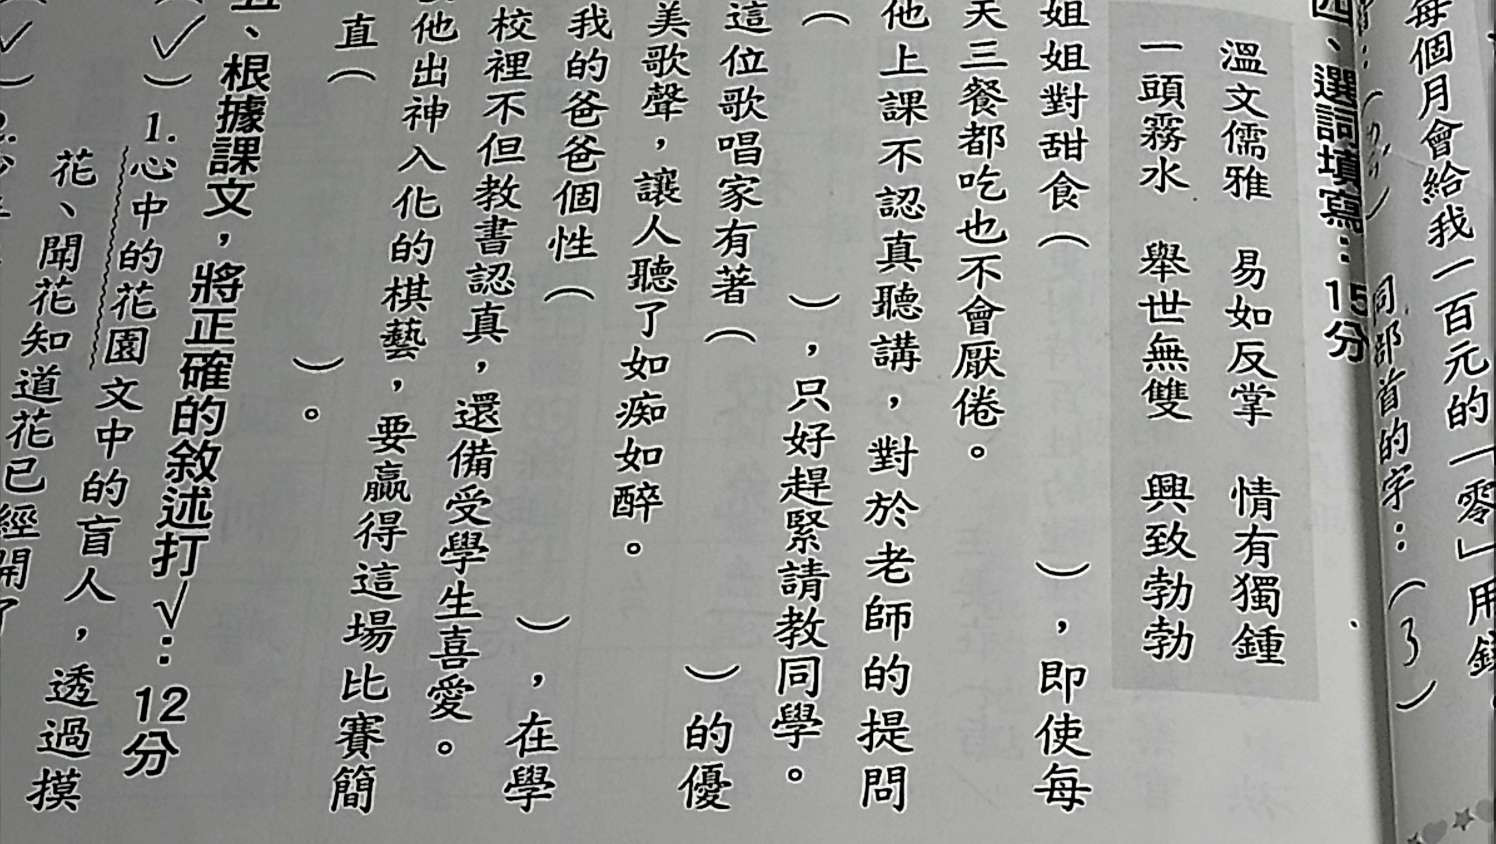 每個月會給我一百元的「零」用錢
同部首的字：（了）
四、選詞填寫：15分
溫文儒雅　易如反掌　情有獨鍾
一頭霧水　舉世無雙　興致勃勃
姐姐對甜食（　），即使每
天三餐都吃也不會厭倦。
他上課不認真聽講，對於老師的提問
（　），只好趕緊請教同學。
這位歌唱家有著（　）的優
美歌聲，讓人聽了如痴如醉。
我的爸爸個性（　），在學
校裡不但教書認真，還備受學生喜愛。
他出神入化的棋藝，要贏得這場比賽簡
直（　）。
五、根據課文，將正確的敘述打√：12分
（√）1.心中的花園文中的盲人，透過摸
花、聞花知道花已經開了
（√）2.